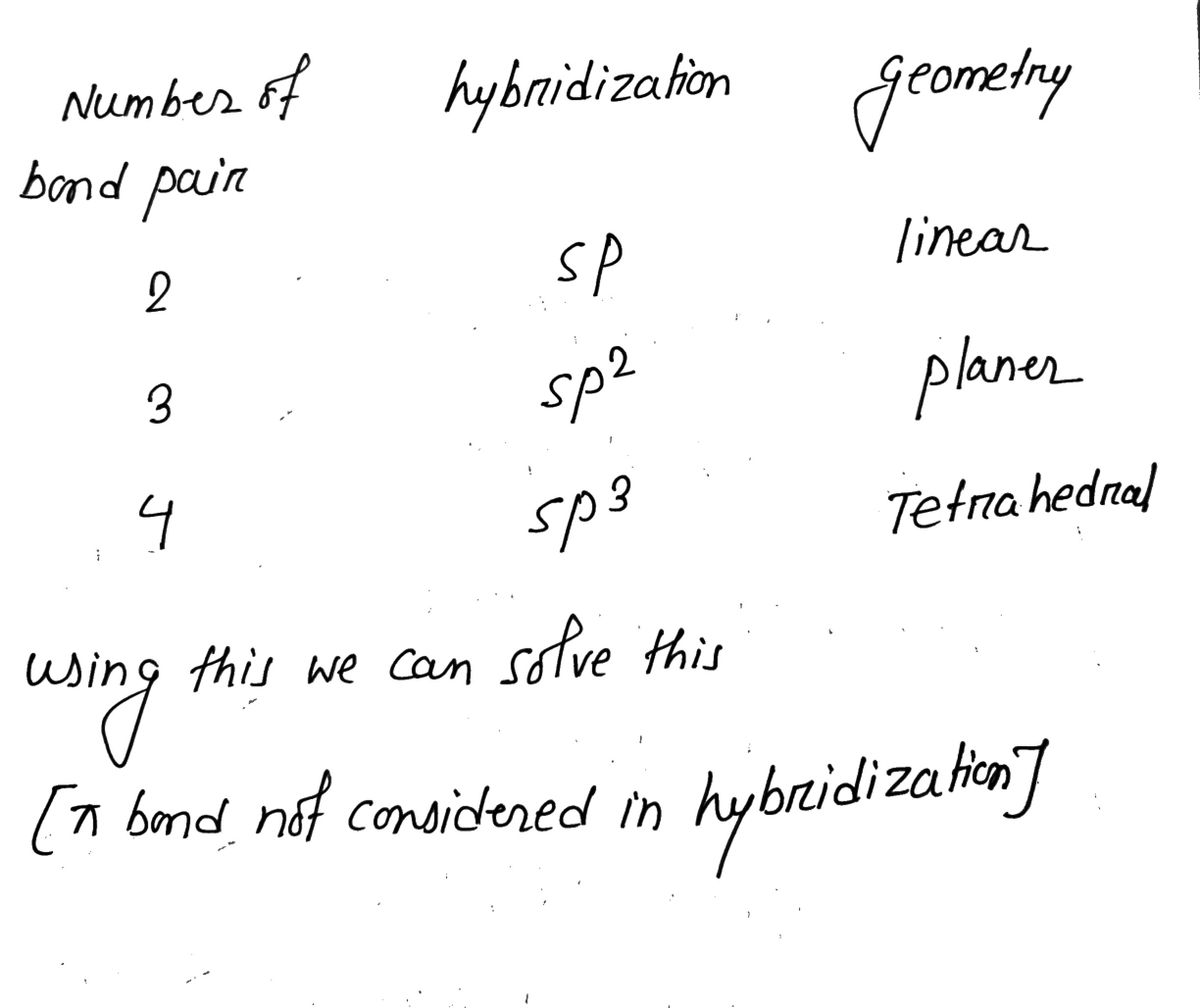 Number of hybridization geometry
bond pair
2 sp linear
3 sp² planer
4 sp³ Tetrahedral
using this we can solve this
[π bond not considered in hybridization]